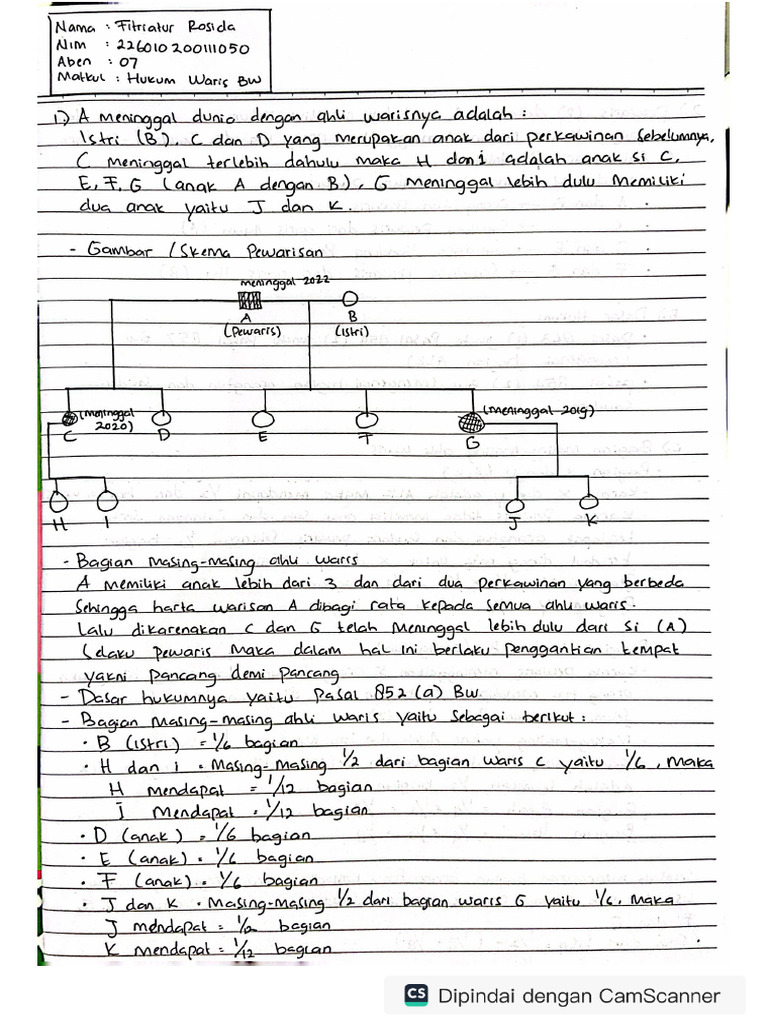 Nama : Fitriatur Rosida
Nim : 226010200111050
Aben : 07
Matkul : Hukum Waris BW
1) A meninggal dunia dengan ahli warisnya adalah :
Istri (B), C dan D yang merupakan anak dari perkawinan sebelumnya,
C meninggal terlebih dahulu maka H dan i adalah anak si C,
E, F, G (anak A dengan B), G meninggal lebih dulu memiliki
dua anak yaitu J dan K.
- Gambar / Skema Pewarisan
meninggal 2022
A
(Pewaris)
B
(istri)
(meninggal 2020)
C
D
E
F
(meninggal 2019)
G
H
I
J
K
- Bagian masing-masing ahli waris
A memiliki anak lebih dari 3 dan dari dua perkawinan yang berbeda
Sehingga harta warisan A dibagi rata kepada semua ahli waris.
Lalu dikarenakan C dan G telah meninggal lebih dulu dari si (A)
Selaku pewaris maka dalam hal ini berlaku penggantian tempat
yakni pancang demi pancang
- Dasar hukumnya yaitu Pasal 852 (a) BW.
- Bagian masing-masing ahli waris yaitu sebagai berikut :
• B (istri) = 1/6 bagian
• H dan i = Masing-masing 1/2 dari bagian waris C yaitu 1/6, maka
H mendapat = 1/12 bagian
I mendapat = 1/12 bagian
• D (anak) = 1/6 bagian
• E (anak) = 1/6 bagian
• F (anak) = 1/6 bagian
• J dan K = Masing-masing 1/2 dari bagian waris G yaitu 1/6, maka
J mendapat = 1/2 bagian
K mendapat = 1/12 bagian
CS Dipindai dengan CamScanner